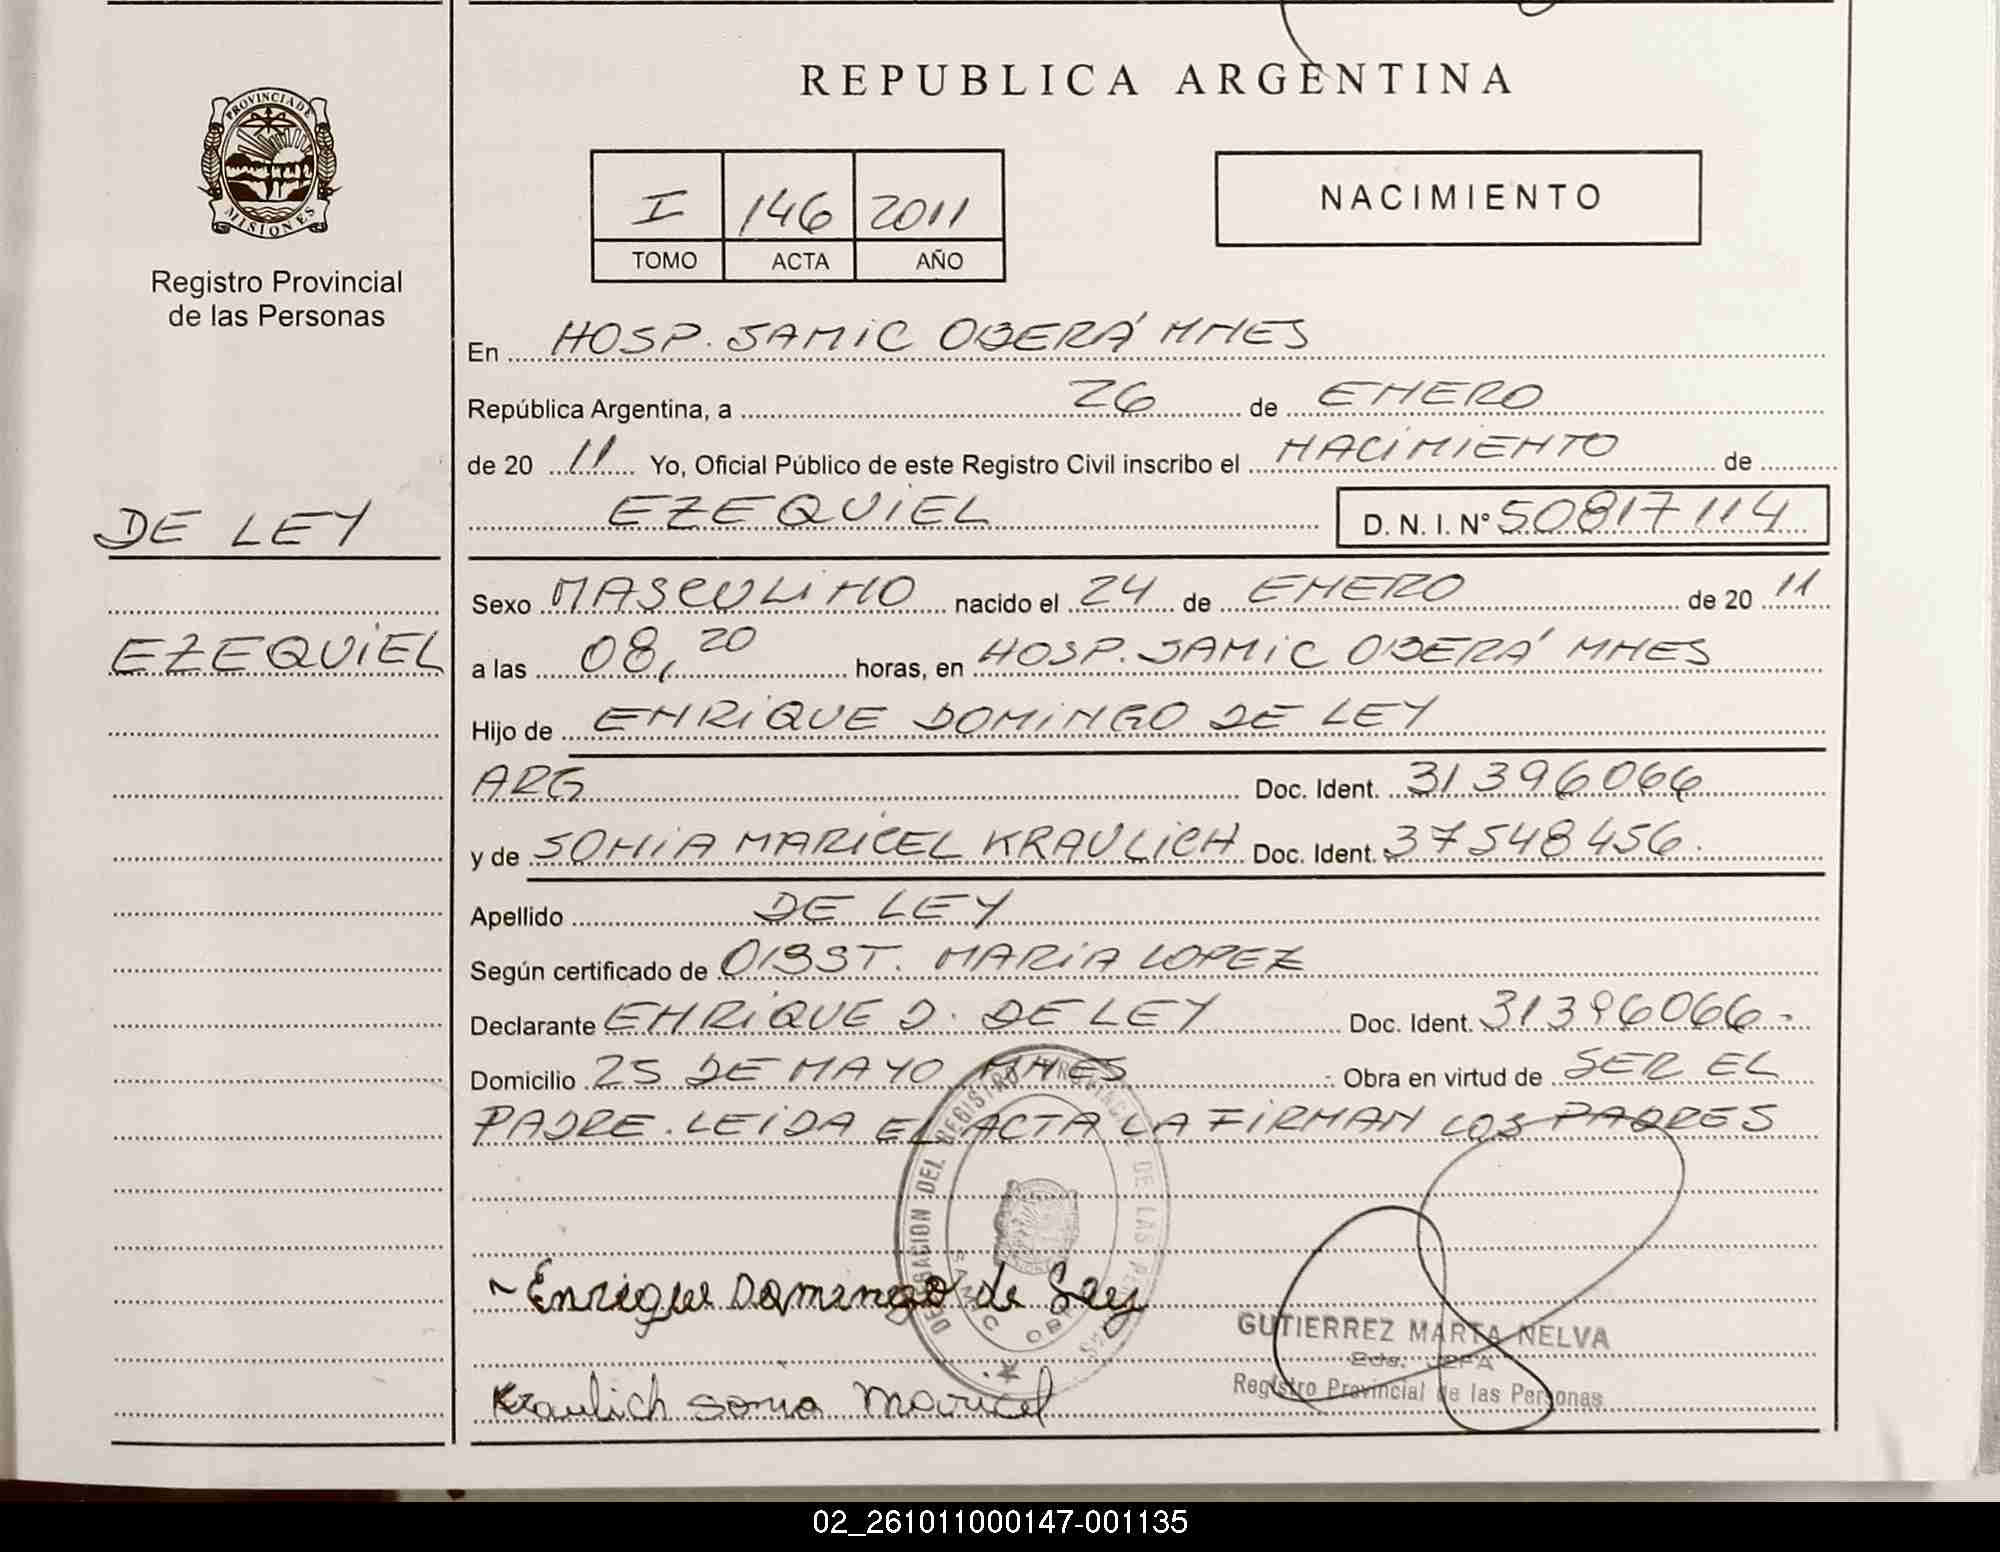 REPUBLICA ARGENTINA
PROVINCIA DE
MISIONES
Registro Provincial
de las Personas
I 146 2011
TOMO ACTA AÑO
NACIMIENTO
En HOSP. SAMIC OBERÁ MNES
República Argentina, a 26 de ENERO
de 20 11 Yo, Oficial Público de este Registro Civil inscribo el NACIMIENTO de
EZEQUIEL D. N. I. N° 50817114
DE LEY
EZEQUIEL
Sexo MASCULINO nacido el 24 de ENERO de 20 11
a las 08,20 horas, en HOSP. SAMIC OBERÁ MNES
Hijo de ENRIQUE DOMINGO DE LEY
ARG Doc. Ident. 31396066
y de SONIA MARICEL KRAULICH Doc. Ident. 37548456.
Apellido DE LEY
Según certificado de OBST. MARIA LOPEZ
Declarante ENRIQUE D. DE LEY Doc. Ident. 31396066-
Domicilio 25 DE MAYO MNES Obra en virtud de SER EL
PADRE. LEIDA EL ACTA LA FIRMAN LOS PADRES
DELEGACION DEL REGISTRO PROVINCIAL DE LAS
SAMIC
Enrique Domingo de Ley
Kraulich Sonia Maricel
GUTIERREZ MARTA NELVA
JEFA
Registro Provincial de las Personas
02_261011000147-001135